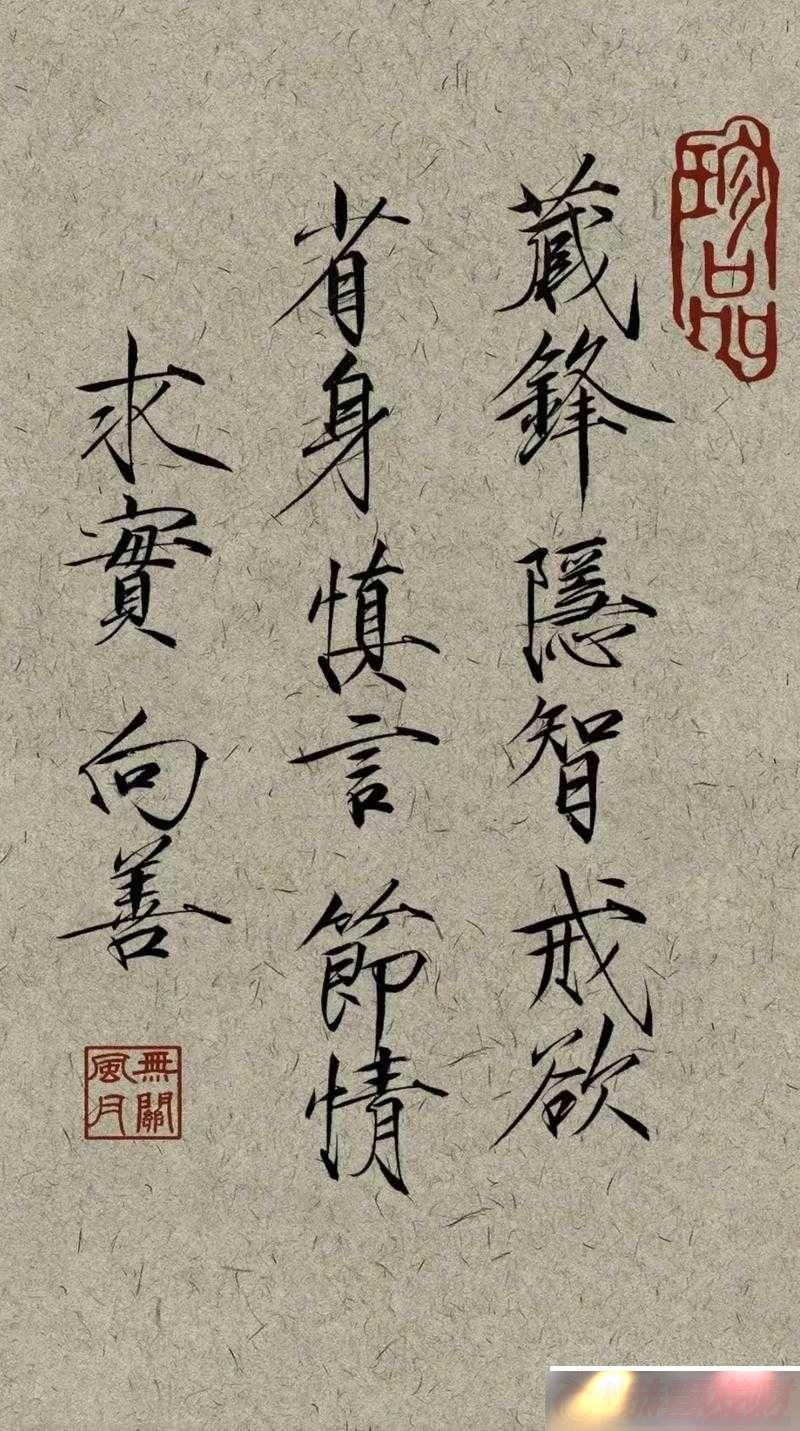 珍品
藏鋒隱智戒欲
省身慎言節情
求實向善
無關
風月